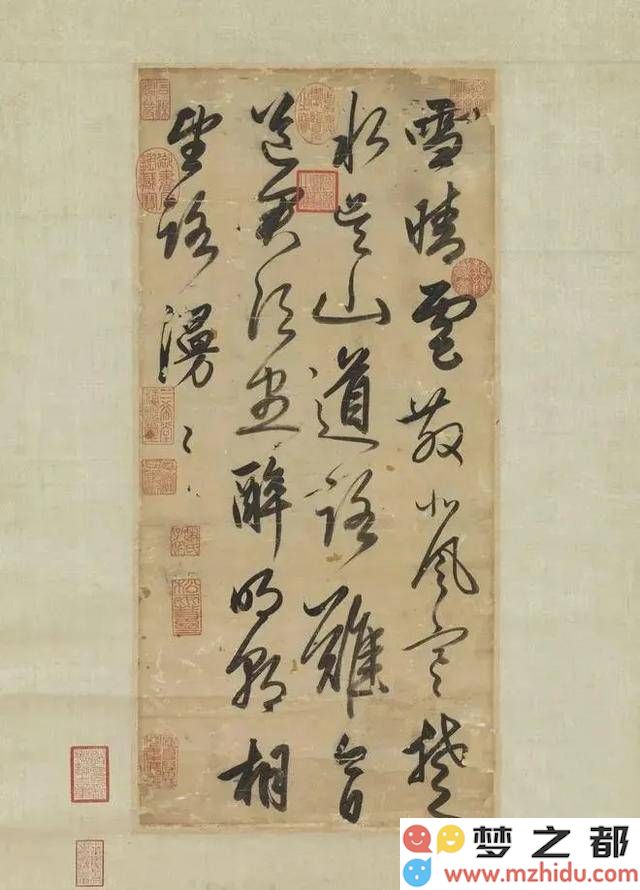 雪晴雲散北風寒楚
水吳山道路難今日
送君須盡醉明朝相
望路漫〻
梦之都
www.mzhidu.com